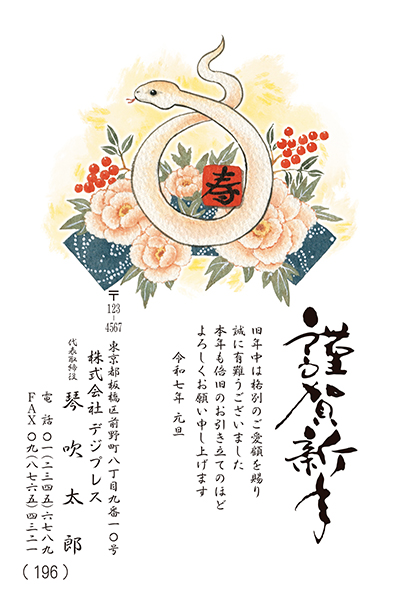 寿
謹賀新年
旧年中は格別のご愛顧を賜り
誠に有難うございました
本年も倍旧のお引き立てのほど
よろしくお願い申し上げます
令和七年 元旦
〒123-4567
東京都板橋区前野町八丁目九番一〇号
株式会社デジプレス
代表取締役 琴吹太郎
電話〇一(二三四五)六七八九
FAX〇九(八七六五)四三二一
(196)